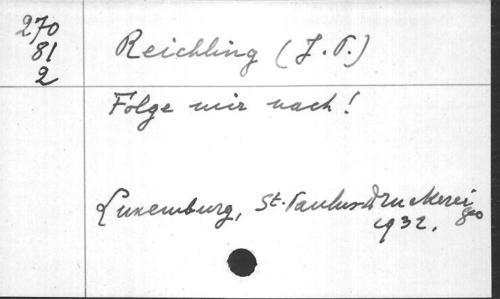 270
81
2
Reichling (J. P.)
Folge mir nach!
Luxemburg, St. Paulus-Druckerei
1932. 8o